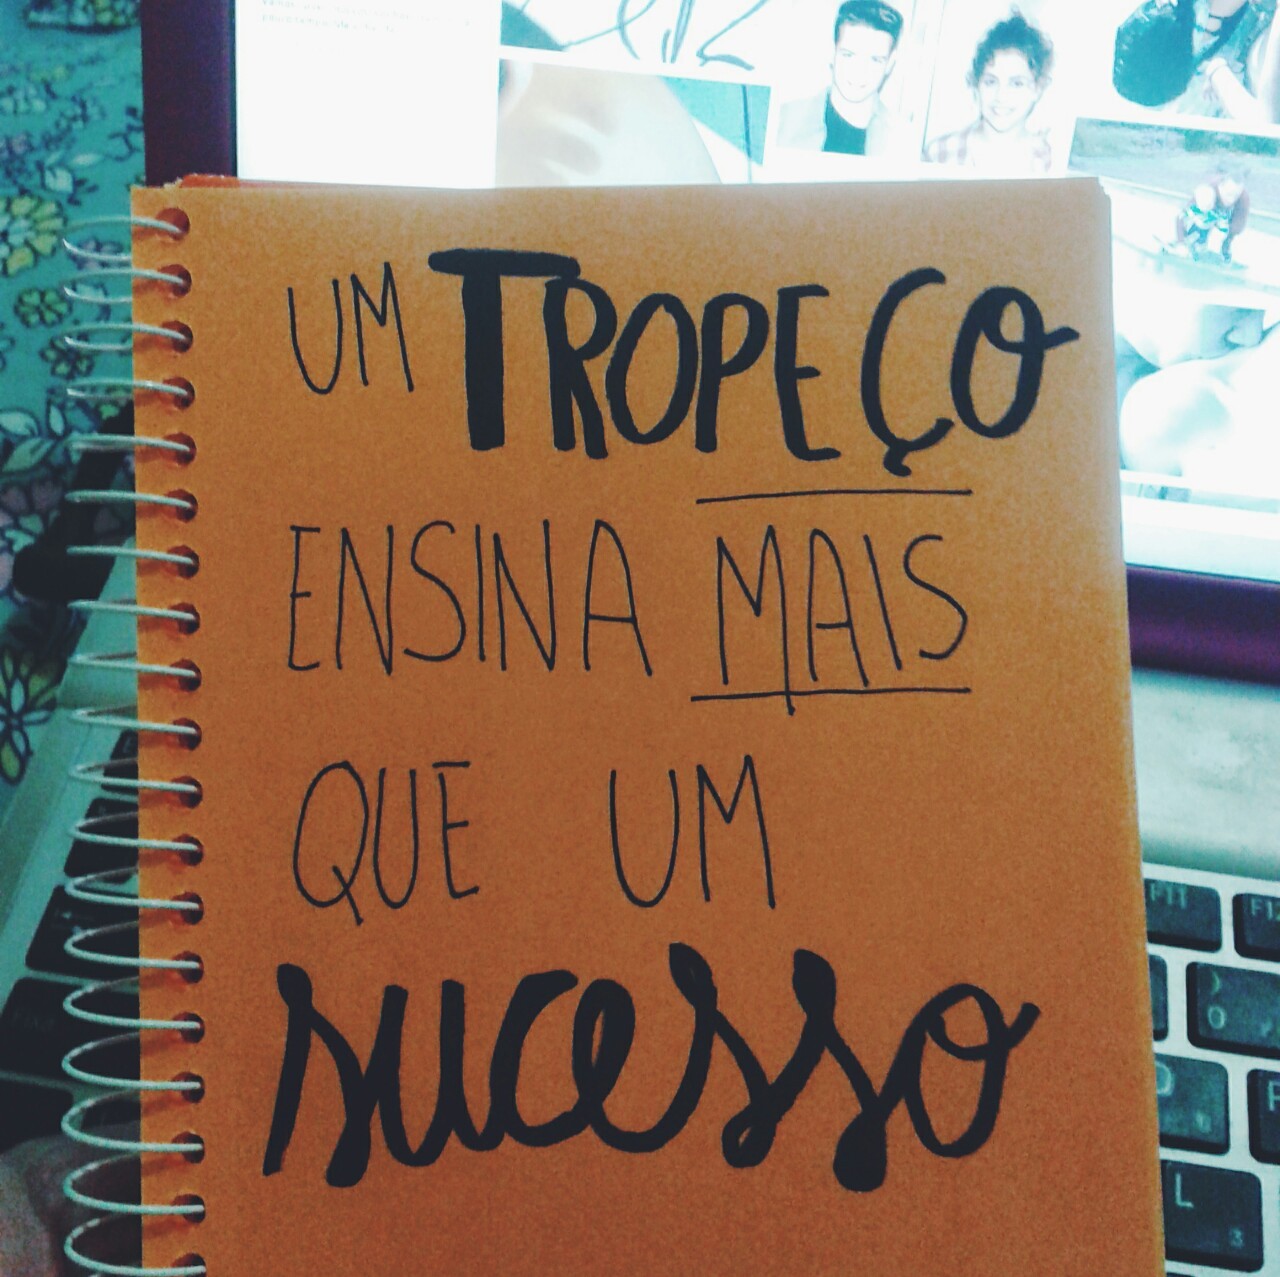 UM TROPEÇO
ENSINA MAIS
QUE UM
sucesso
F11
L
3